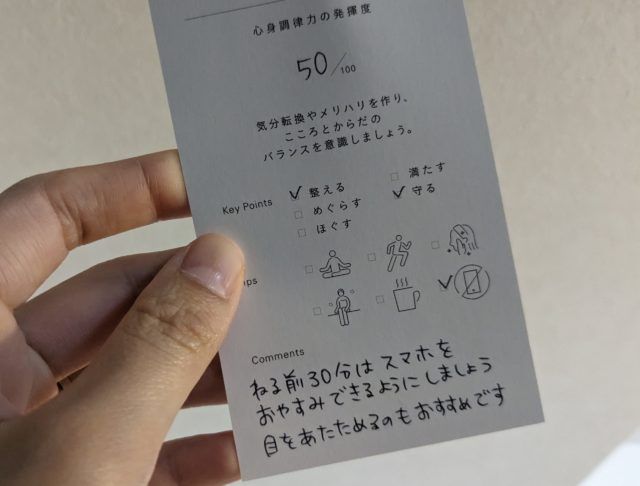 心身調律力の発揮度
50/100
気分転換やメリハリを作り、
こころとからだの
バランスを意識しましょう。
Key Points ✓ 整える □ 満たす
□ めぐらす ✓ 守る
□ ほぐす
ps
Comments
ねる前30分はスマホを
おやすみできるようにしましょう
目をあたためるのもおすすめです